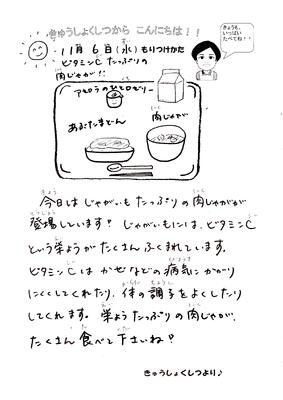 きゅうしょくしつから こんにちは!!
きょうも、
いっぱい
たべてね!!
11月 6日(水) もりつけかた
ビタミンC たっぷりの
肉じゃが!!
アセロラのひとロゼリー
あぶたまどん
肉じゃが
今日はじゃがいもたっぷりの肉じゃがが
登場しています? じゃがいもには、ビタミンC
という栄ようがたくさんふくまれています。
ビタミンCは かぜなどの病気にかかり
にくくしてくれたり、体の調子をよくしたり
してくれます。栄ようたっぷりの肉じゃが、
たくさん食べて下さいね?
きゅうしょくしつより♪